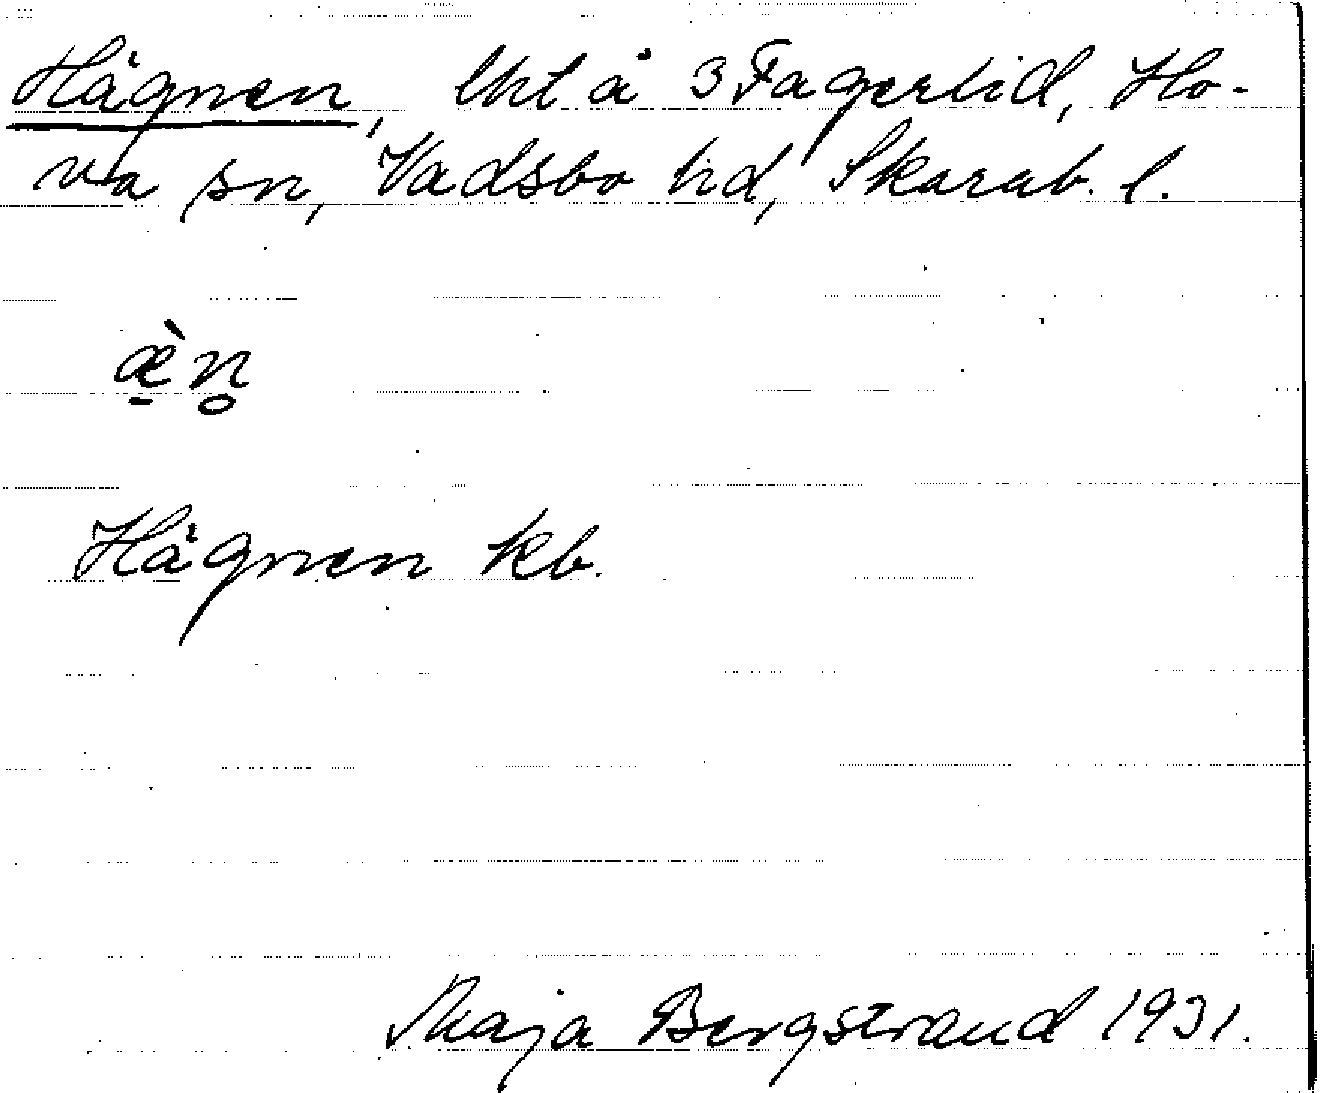 Hägnen, lht å 3 Fagerlid, Ho-
va sn, Vadsbo hd, Skarab. l.
æ̠̀n̥
Hägnen kb.
Maja Bergstrand 1931.